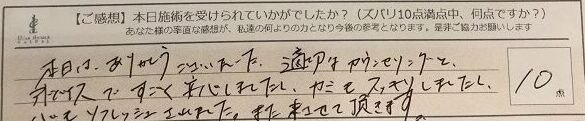 【ご感想】本日施術を受けられていかがでしたか？（ズバリ10点満点中、何点ですか？）
あなた様の率直な感想が、私達の何よりの力となり今後の参考となります。是非ご協力お願いします
本日は、ありがとうございました。適切なカウンセリングと、
アドバイスですごく安心しましたし、カミもスッキリしましたし、
心もリフレッシュされました。また来させて頂きます。
10点